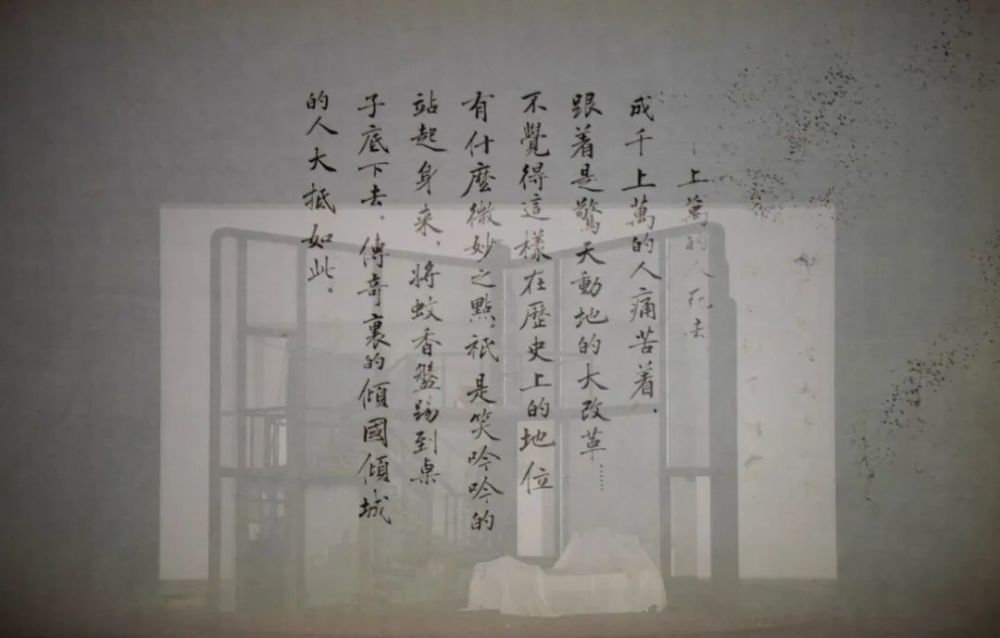 上萬的人死去
成千上萬的人痛苦着，
跟着是驚天動地的大改革……
不覺得這樣在歷史上的地位
有什麼微妙之點，祇是笑吟吟的
站起身来，將蚊香盤踢到桌
子底下去。傳奇裏的傾國傾城
的人大抵如此。